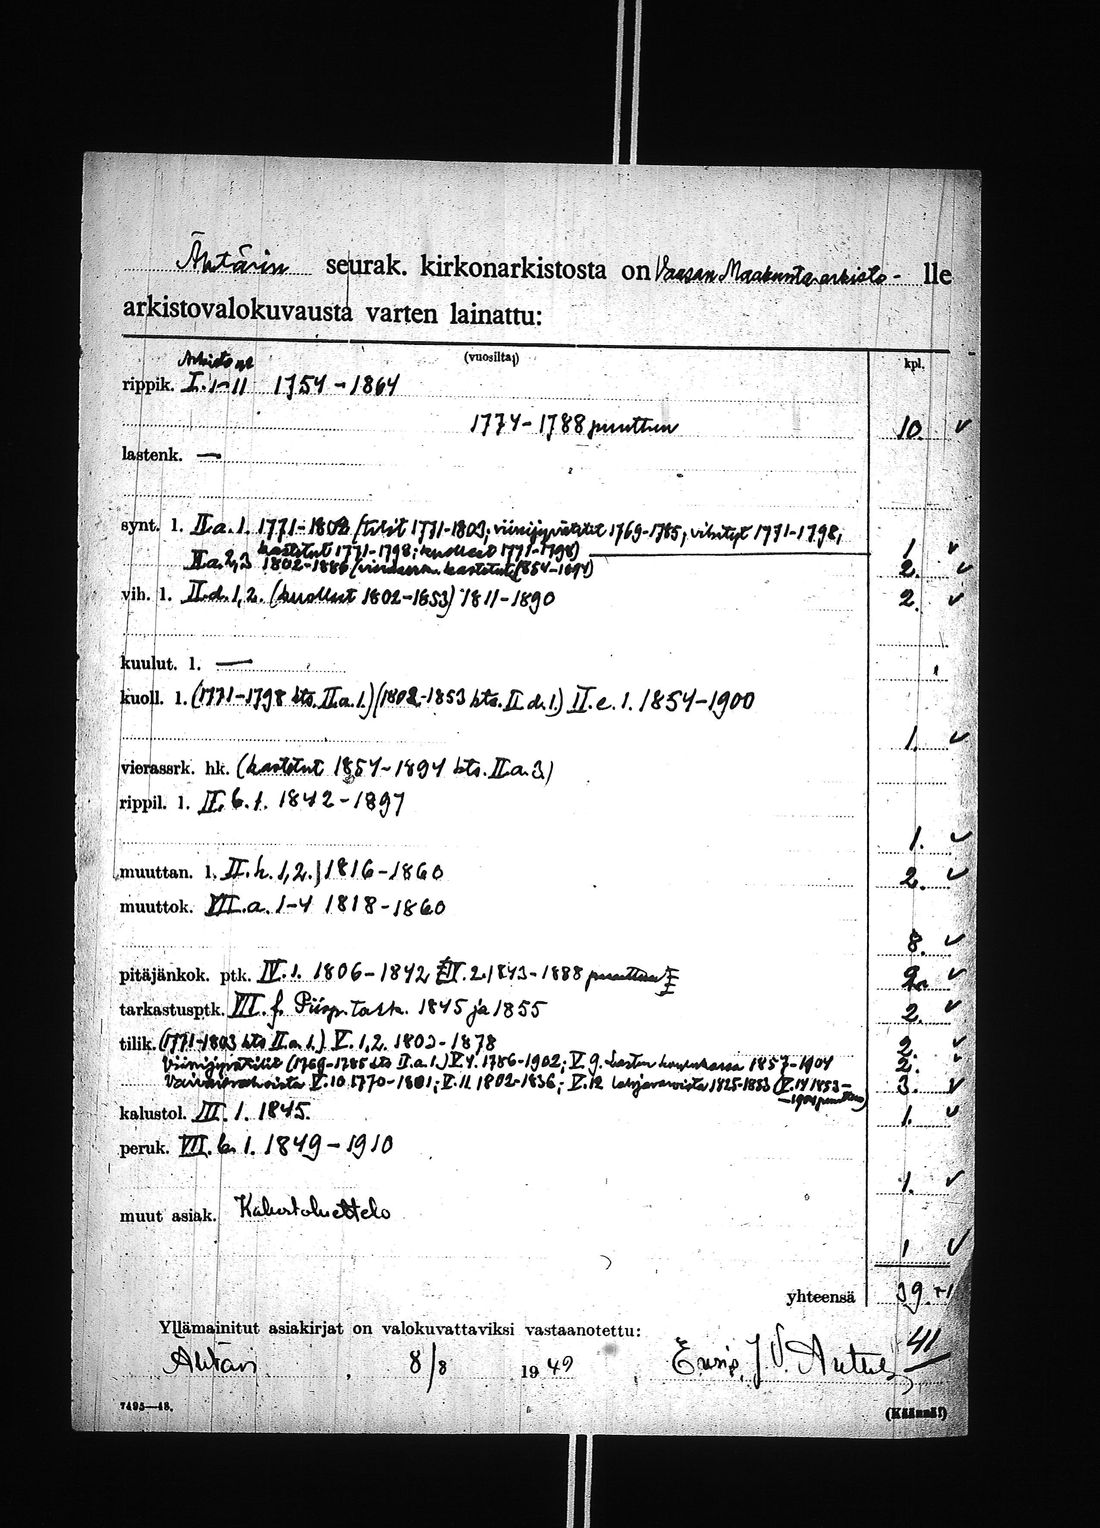 Ähtärin seurak. kirkonarkistosta on Vaasan Maakunta-arkisto- lle
arkistovalokuvausta varten lainattu:
(vuosilta;) kpl.
Arkisto
rippik. I. 1-11 1754-1864
1774-1788 puuttuu 10.
lastenk. —
synt. l. II.a.1. 1771-1802 (tilit 1771-1803; viinijyvätilit 1769-1785; vihityt 1771-1798,
kastetut 1771-1798; kuolleet 1771-1798) 1
II.a.2,3 1802-1886 (vierassrk. kastetut 1854-1894) 2.
vih. l. II.d.1,2. (kuolleet 1802-1853) 1811-1890 2.
kuulut. l. —
kuoll. l. (1771-1798 kts. II.a.1.) (1802-1853 kts. II.d.1.) II.e.1. 1854-1900
1.
vierassrk. hk. (kastetut 1854-1894 kts. II.a.3)
rippil. l. II.b.1. 1842-1897
1.
muuttan. l. II.h.1,2. 1816-1860 2.
muuttok. VII.a. 1-4 1818-1860
8.
pitäjänkok. ptk. IV.1. 1806-1842 IV.2. 1843-1888 puuttuu 2.
tarkastusptk. VII.f. Piisp. tark. 1845 ja 1855 2.
tilik. (1771-1803 kts II.a.1.) V.1,2. 1803-1878 2.
Viinijyvätilit (1769-1785 kts II.a.1.) V.4. 1786-1902; V.9. 1857-1904 2.
V.10. 1770-1801; V.11 1802-1836; V.12 1825-1853 (V.14 1853- 3.
-1901 puuttuu)
kalustol. III.1. 1845. 1.
peruk. VII.b.1. 1849-1910
1.
muut asiak. Kalustoluettelo
1
yhteensä 39.+1
41
Yllämainitut asiakirjat on valokuvattaviksi vastaanotettu:
Ähtäri 8/8 1949 J V.
7495—48. (Käännä!)